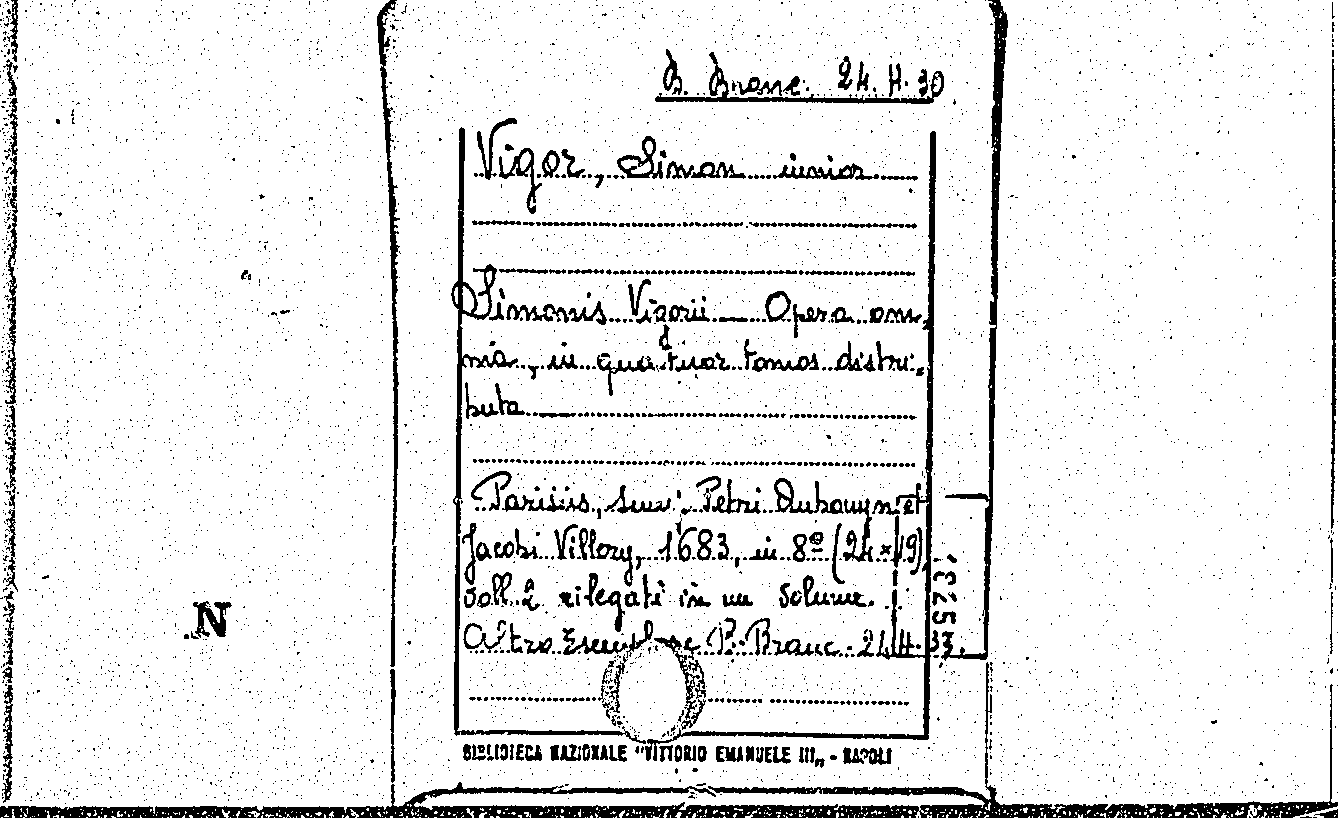 B. Branc. 24. H. 30
Vigor, Simon iunior
Simonis Vigorii Opera om-
nia, in quatuor tomos distri-
buta
Parisiis, Petri Aubouyn et
Jacobi Villery, 1683, in 8º (24 x 19)
voll. 2 rilegati in un volume.
Altro B. Branc. 24. H. 33.
573.
N
BIBLIOTECA NAZIONALE "VITTORIO EMANUELE III„ - NAPOLI